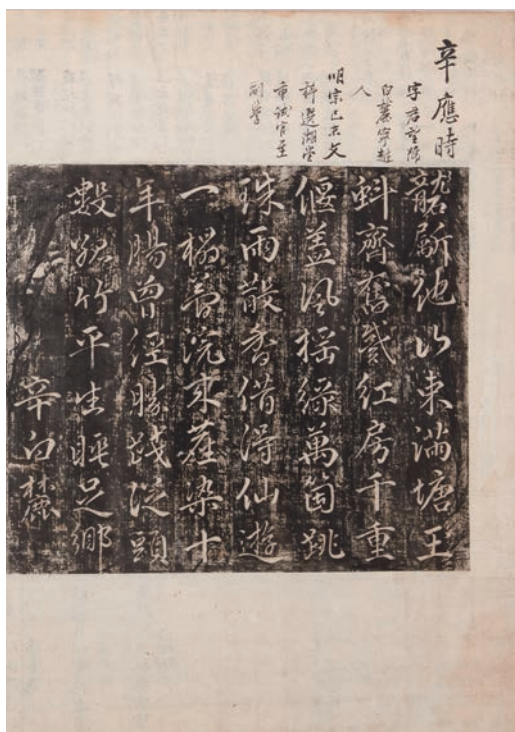 辛應時
字君望號
白麓寧越
人
明宗己未文
科選湖堂
重試官至
副學
斸他山束滿塘玉
蚪齊奮戲紅房千重
偃盖風搖綠萬箇跳
珠雨散香借得仙遊
一榻浣來塵染十
年腸曾經勝踐從頭
數竹平生睡足鄉
辛白麓